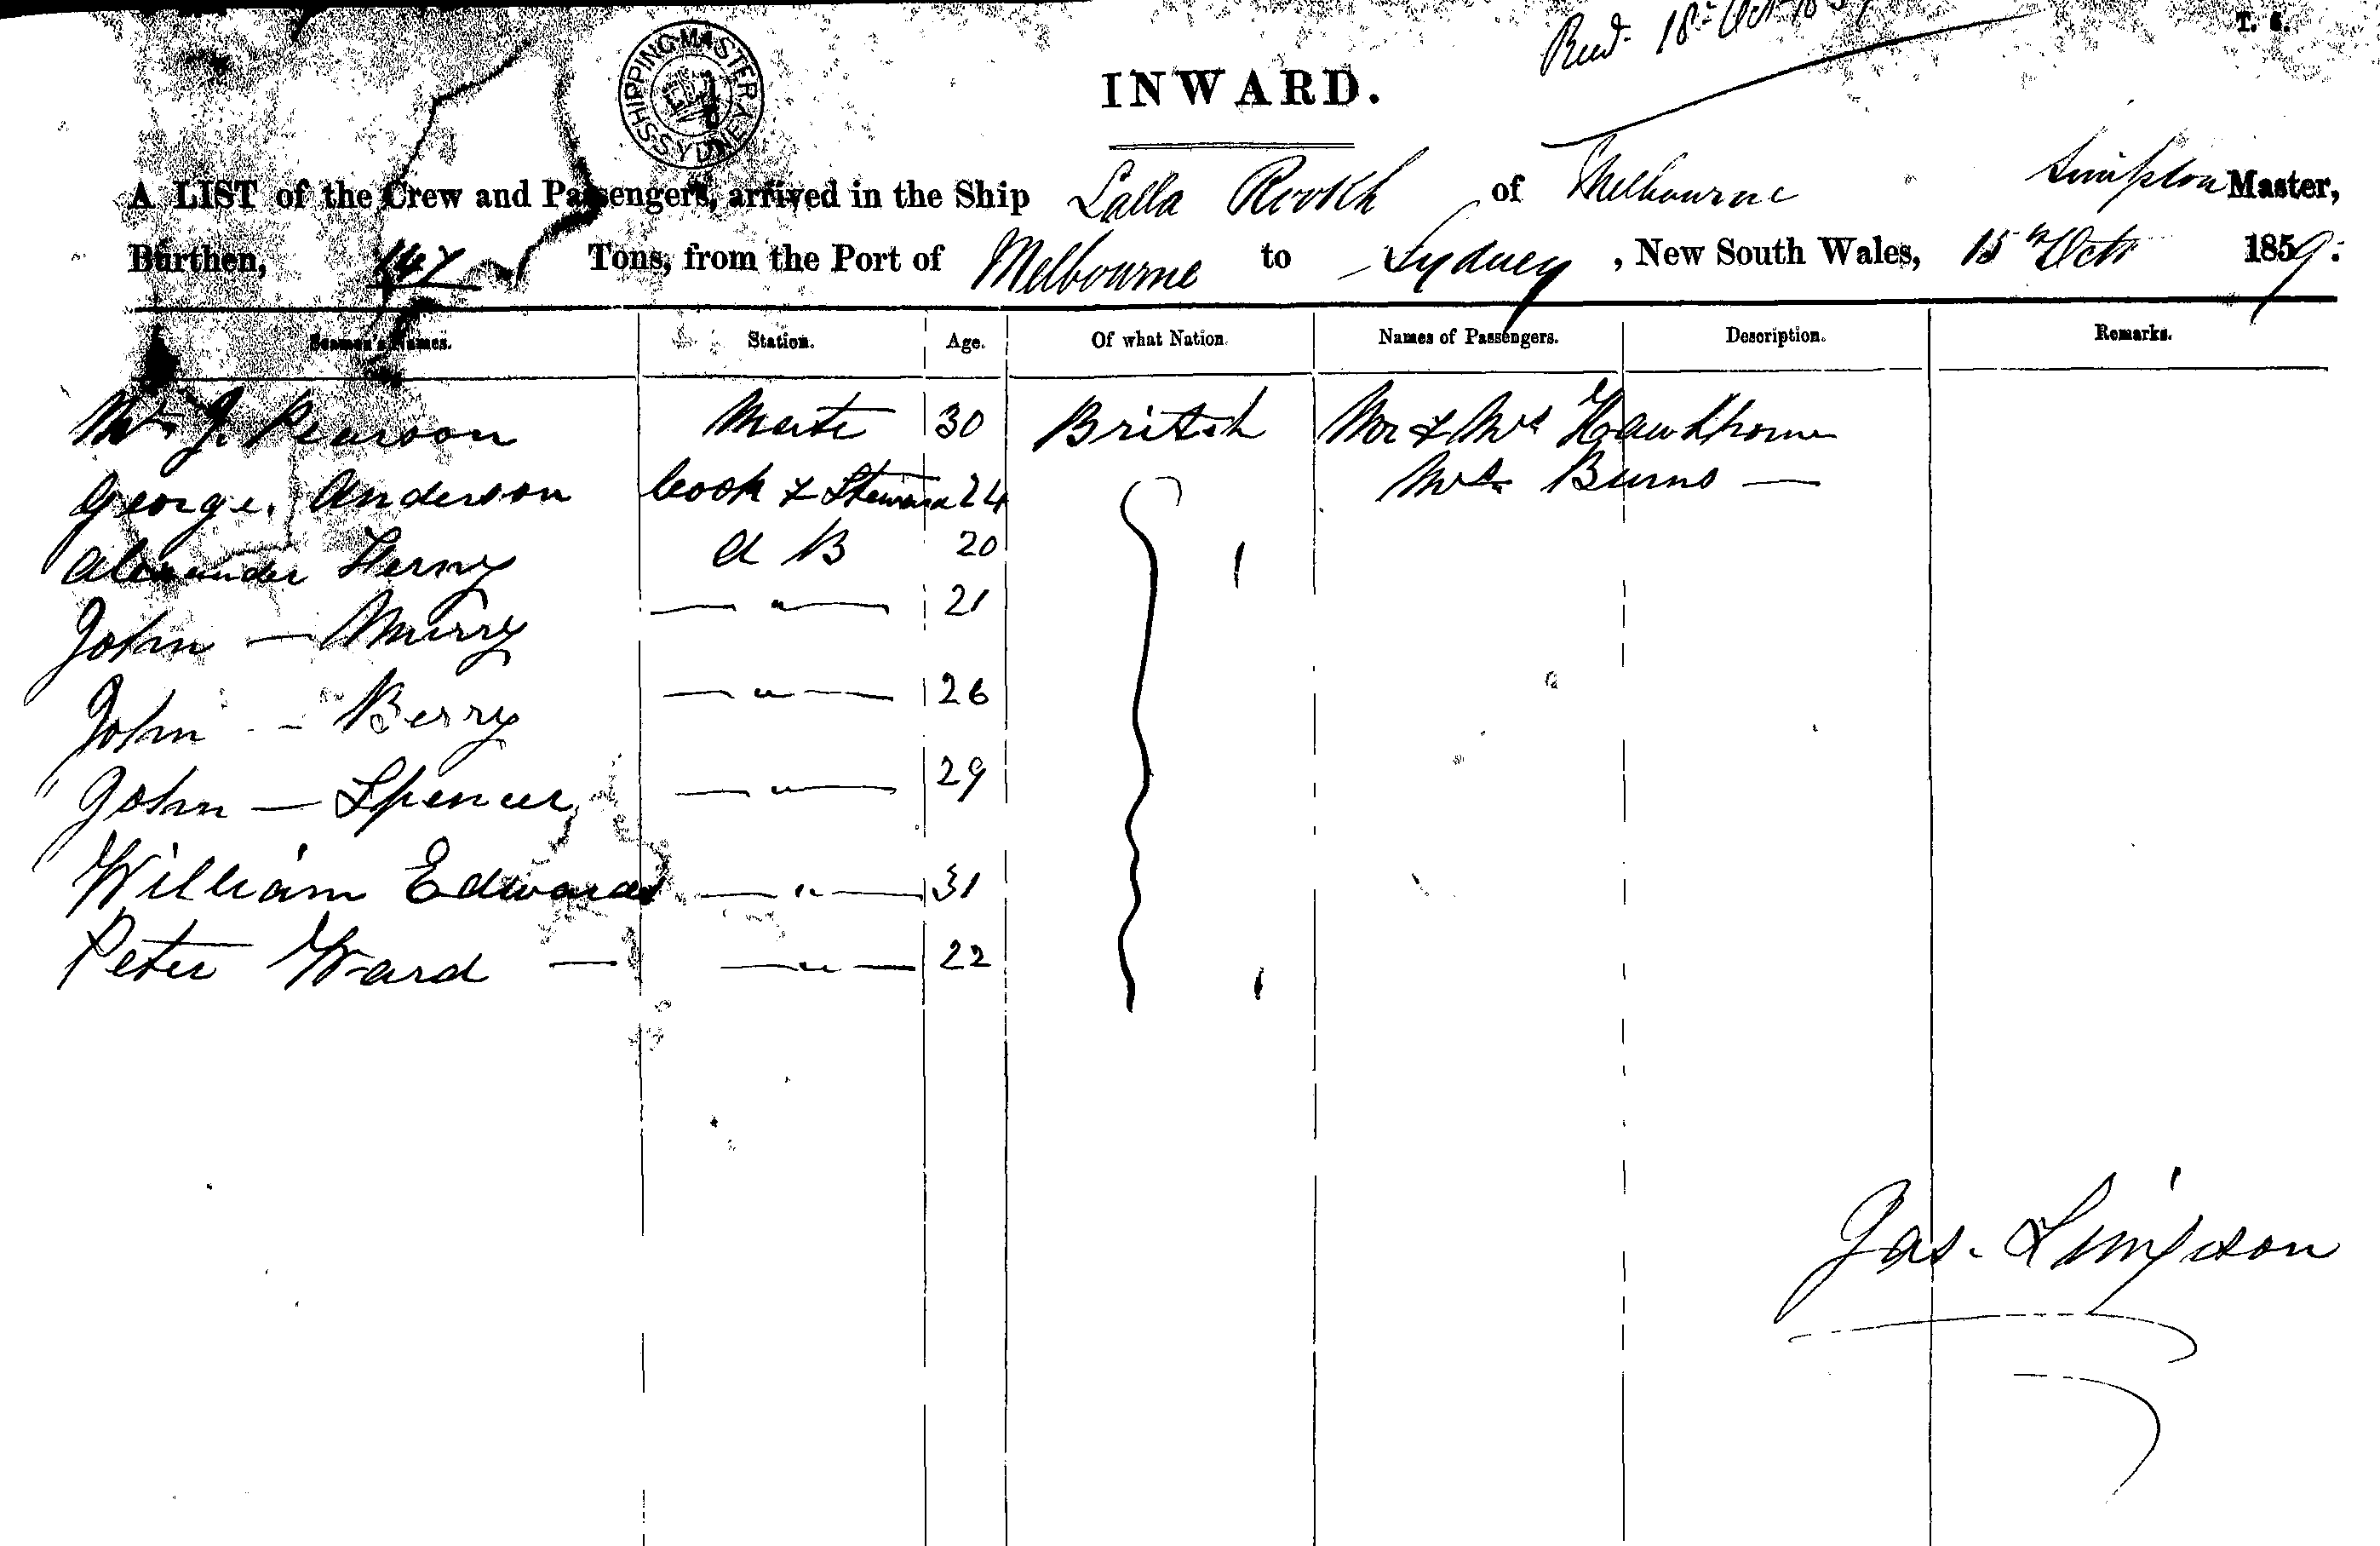 Recd. 18th Oct 1859
T. 6.
SHIPPING MASTER SYDNEY
INWARD.
A LIST of the Crew and Passengers, arrived in the Ship Lalla Rookh of Melbourne Simpson Master,
Burthen, 147 Tons, from the Port of Melbourne to Sydney, New South Wales, 15th Octr 1859.
Seamen's Names. Station. Age. Of what Nation. Names of Passengers. Description. Remarks.
Mr. J. Pearson Mate 30 British Mr & Mrs Hawthorne
George Anderson Cook & Steward 24 Mrs Burns —
Alexander A B 20
John — Murry — " — 21
John - Berry — " — 26
John — Spencer — " — 29
William Edwards — " — 31
Peter Ward — — " — 22
Jas. Simpson